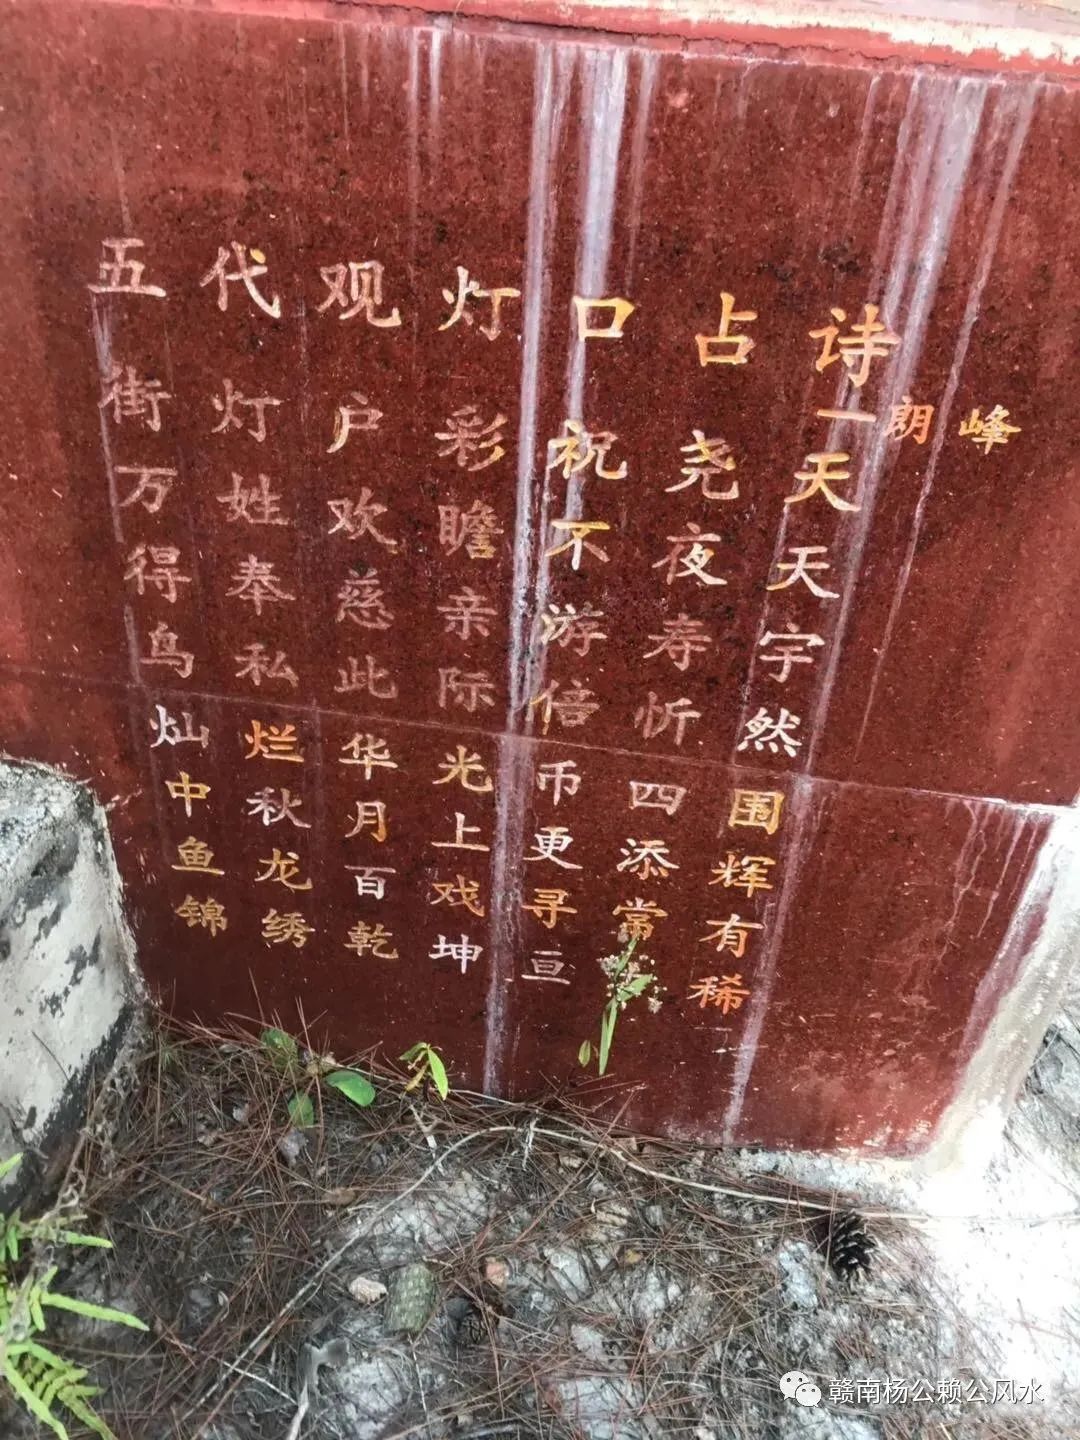 五代观灯口占诗
一朗峰
街灯户彩祝尧天
万姓欢瞻不夜天
得奉慈亲游寿宇
鸟私此际倍忻然
灿烂华光币四围
中秋月上更添辉
鱼龙百戏寻常有
锦绣乾坤亘稀
赣南杨公赖公风水